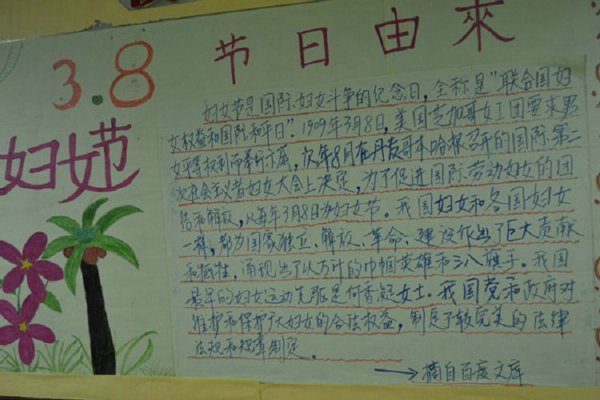 节日由來
3.8
妇女节
妇女节是国际妇女斗争的纪念日，全称是“联合国妇
女权益和国际和平日”。1909年3月8日，美国芝加哥女工因要求男
女平等权利而举行示威，次年8月在丹麦哥本哈根召开的国际第二
次社会主义者妇女大会上决定，为了促进国际劳动妇女的团
结和解放，以每年3月8日为妇女节。我国妇女和各国妇女
一样，都为国家独立、解放、革命、建设作出了巨大贡献
和牺牲，涌现出了以万计的巾帼英雄和三八旗手。我国
最早的妇女运动先驱是何香凝女士。我国党和政府对
维护和保护广大妇女的合法权益，制定了较完美的法律
法规和规章制定。
→摘自百度文库